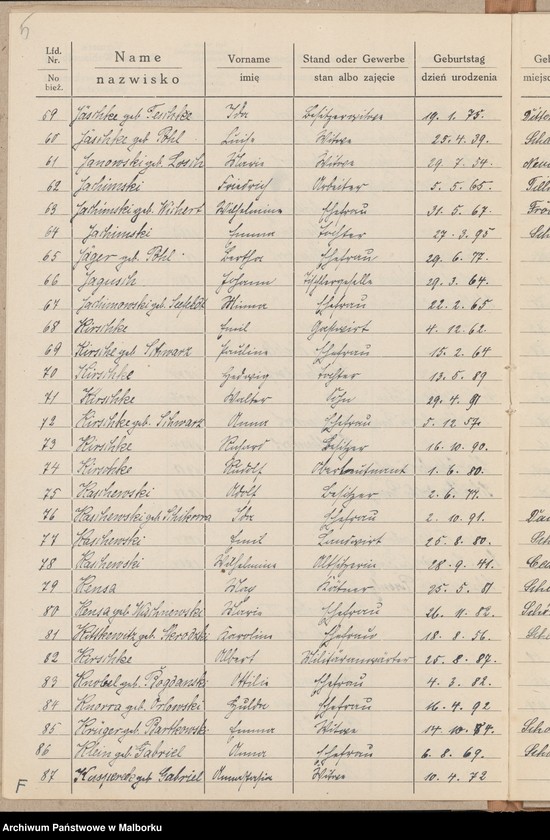 5
Lfd. Nr. Name Vorname Stand oder Gewerbe Geburtstag
No bież. nazwisko imię stan albo zajęcie dzień urodzenia
59 Jäschke geb. Teschke Ida Besitzerwitwe 19. 1. 75.
60 Jäschke geb. Pohl Luise Witwe 25. 4. 39.
61 Janowski geb. Losch Marie Witwe 29. 7. 54.
62 Jachimski Friedrich Arbeiter 5. 5. 65.
63 Jachimski geb. Wichert Wilhelmine Ehefrau 31. 5. 67.
64 Jachimski Emma Tochter 27. 3. 95
65 Jäger geb. Pohl Bertha Ehefrau 29. 6. 77.
66 Jagusch Johann Tischlergeselle 29. 3. 64.
67 Jachimowski geb. Minna Ehefrau 22. 2. 65
68 Kirschke Emil Gastwirt 4. 12. 62.
69 Kirsche geb. Schwarz Pauline Ehefrau 15. 2. 64
70 Kirschke Hedwig Tochter 13. 5. 89
71 Kirschke Walter Sohn 29. 4. 91
72 Kirschke geb. Schwarz Anna Ehefrau 5. 12. 57.
73 Kirschke Richard Besitzer 16. 10. 90.
74 Kirschke Rudolf Oberleutnant 1. 6. 80.
75 Kaschewski Adolf Besitzer 2. 6. 77.
76 Kaschewski geb. Schikorra Ida Ehefrau 2. 10. 91.
77 Kaschewski Emil Landwirt 25. 8. 80.
78 Kaschewski Wilhelmine Altsitzerin 28. 9. 41.
79 Kensa Max Kätner 25. 5. 81
80 Kensa geb. Wischnewski Marie Ehefrau 26. 11. 82.
81 Kittkewitz geb. Skrodzki Karoline Ehefrau 18. 8. 56.
82 Kirschke Albert Militäranwärter 25. 8. 87.
83 Knobel geb. Bogdanski Ottilie Ehefrau 4. 3. 82.
84 Knorra geb. Orlowski Hulda Ehefrau 16. 4. 92
85 Krüger geb. Bartkowski Emma Witwe 14. 10.
86 Klein geb. Gabriel Anna Ehefrau 6. 8. 69.
87 geb. Gabriel Witwe 10. 4. 72
F
Archiwum Państwowe w Malborku